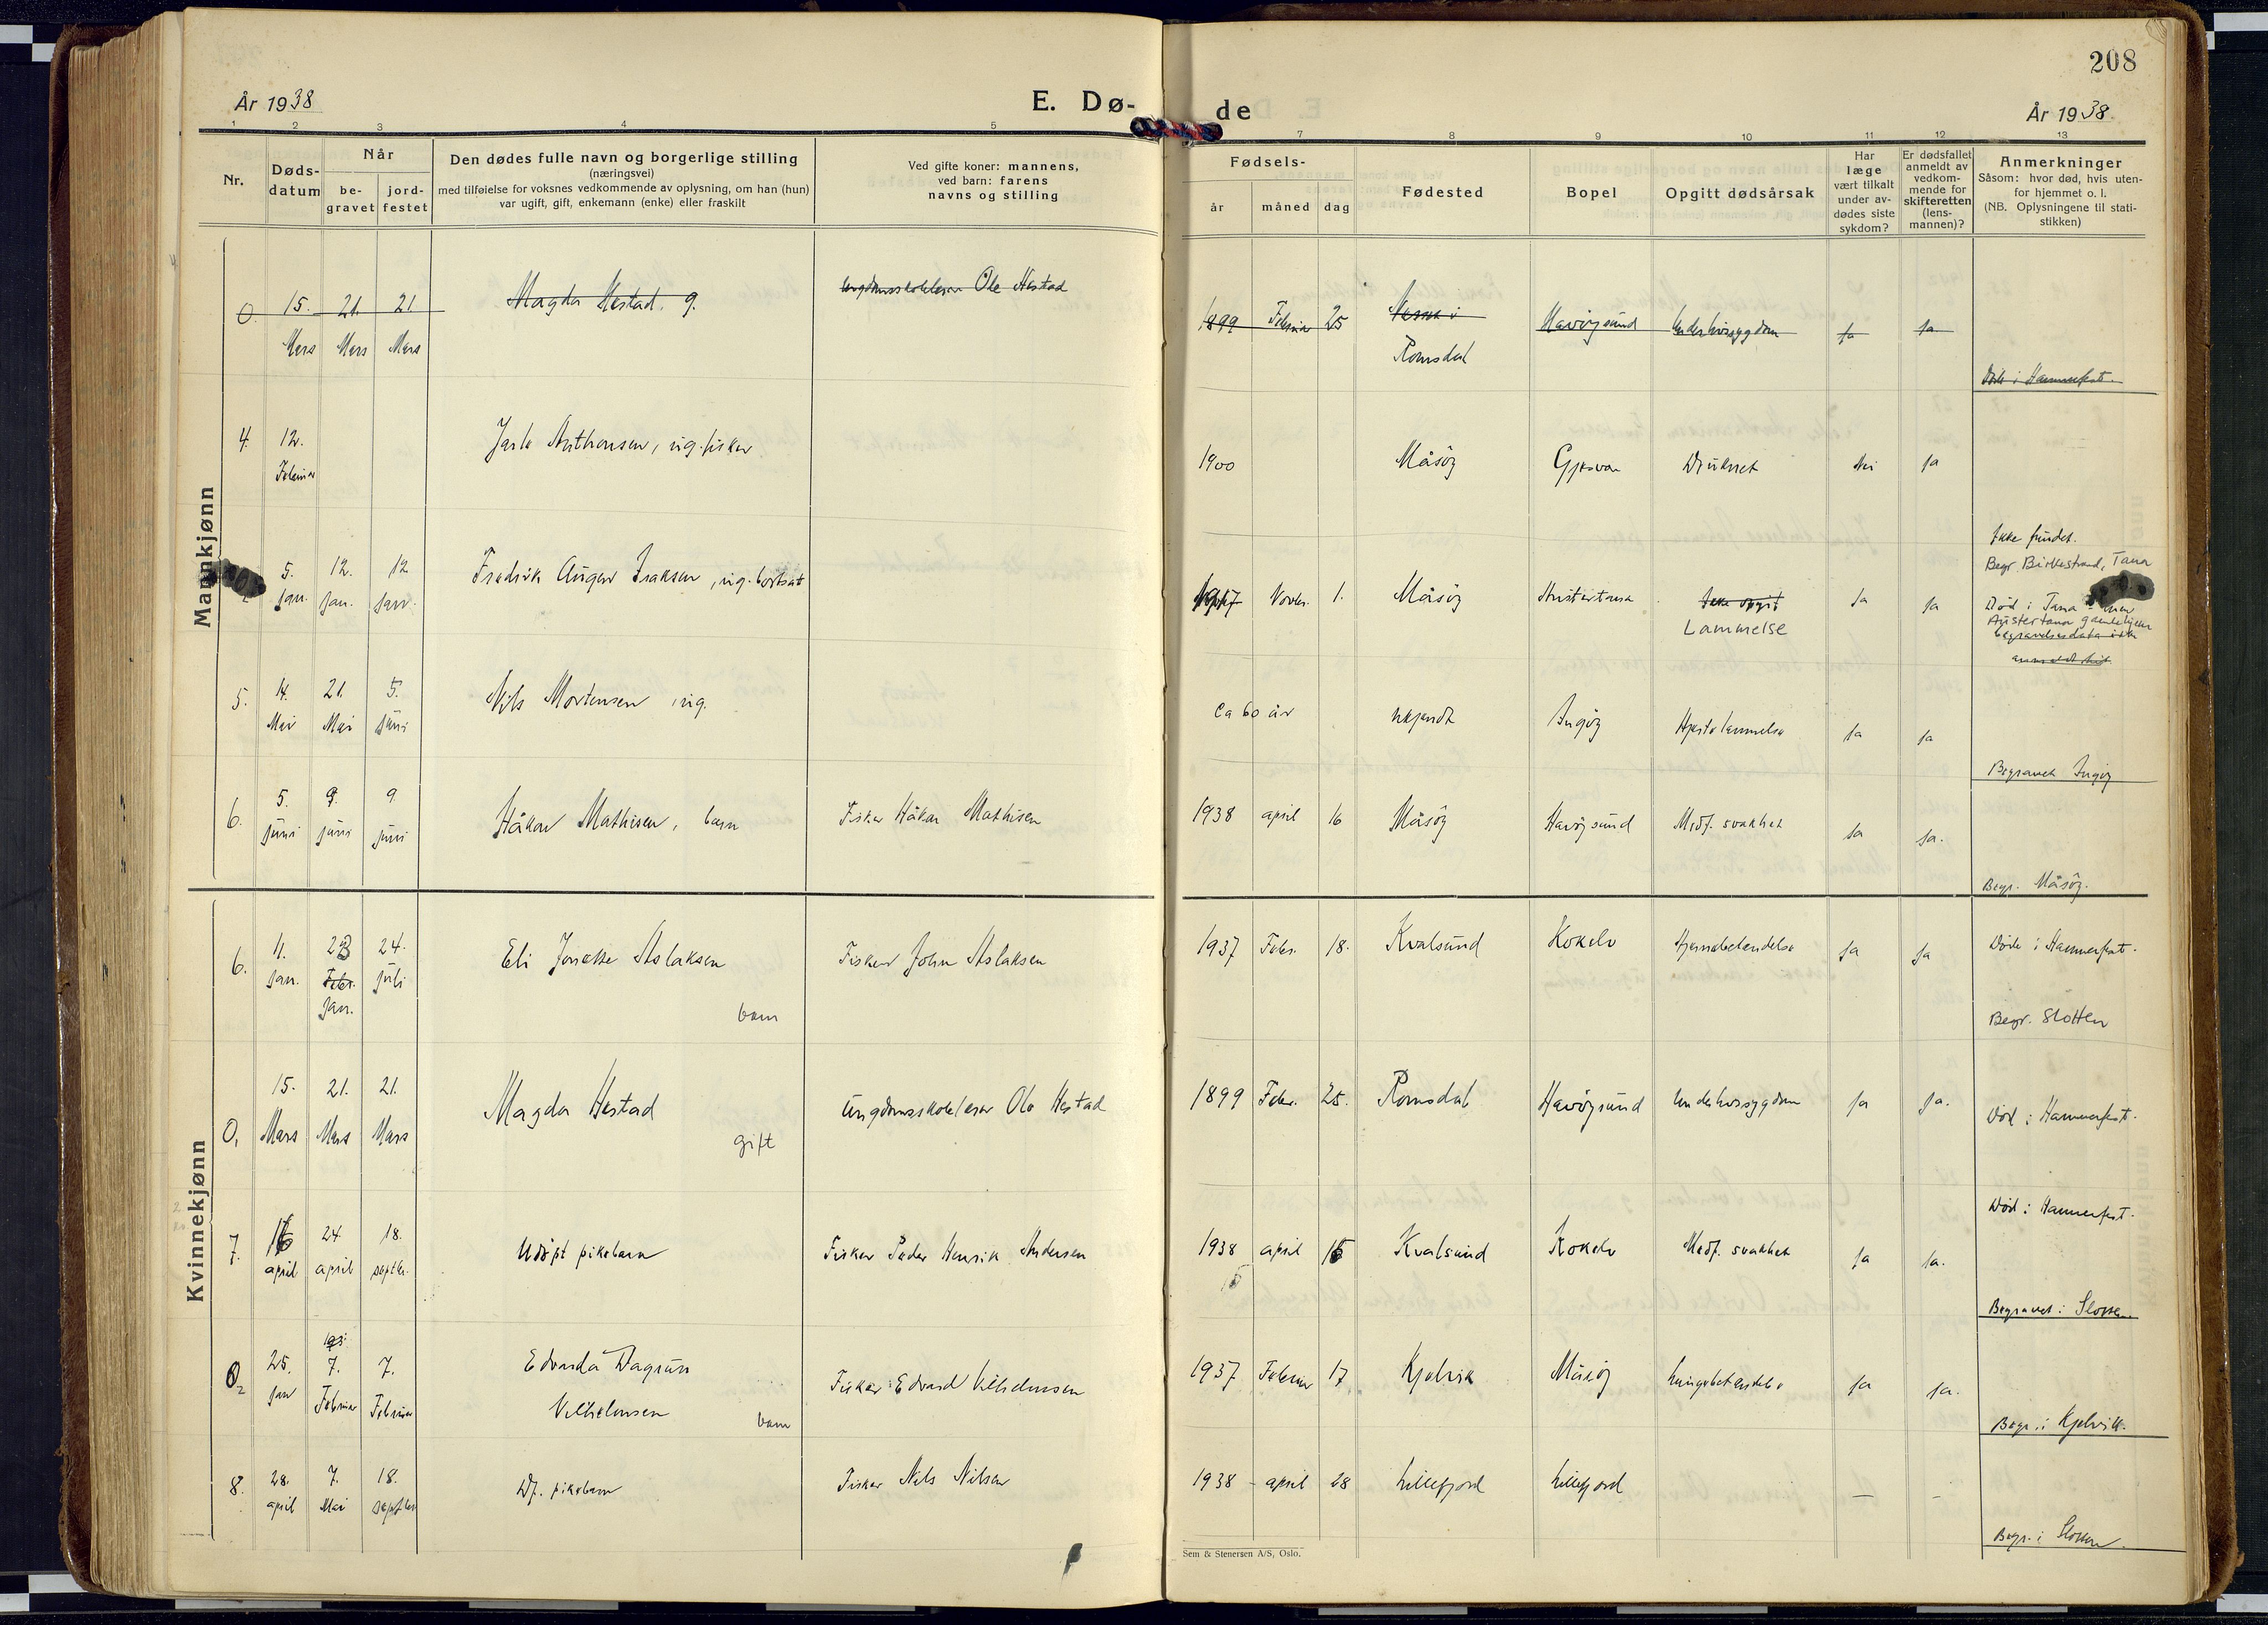 208
År 1938
E. Dø-
de
År 1938.
1 2 3 4 5 7 8 9 10 11 12 13
Nr.
Døds-
datum
Når
be-
gravet
jord-
festet
Den dødes fulle navn og borgerlige stilling
(næringsvei)
med tilføielse for voksnes vedkommende av oplysning, om han (hun)
var ugift, gift, enkemann (enke) eller fraskilt
Ved gifte koner: mannens,
ved barn: farens
navns og stilling
Fødsels-
år måned dag
Fødested
Bopel
Opgitt dødsårsak
Har
læge
vært tilkalt
under av-
dødes siste
sykdom?
Er dødsfallet
anmeldt av
vedkom-
mende for
skifteretten
(lens-
mannen)?
Anmerkninger
Såsom: hvor død, hvis uten-
for hjemmet o. l.
(NB. Oplysningene til stati-
stikken)
Mannkjønn
0. 15. 21. 21 Magda Hestad. g. ungdomsskolelærer Ole Hestad 1899 Februar 25 i Havöysund Underlivssygdom Ja Ja
Mars Mars Mars Romsdal
Död i Hammerfest.
4. 12. Jarle Anthonsen, ug. fisker 1900 Måsöy Gjesvær Druknet Nei Ja
Februar
Ikke fundet.
Begr. Birkestrand, Tana
5. 12. 12 Fredrik August Isaksen, ug. 1917 Novbr. 1. Måsöy Austertana Ikke opgit Ja Ja Död i Tana
jan. jan. jan. Lammelse
Austertana gamlehjem
begravelsesdata ikke
anmeldt hit.
5. 14. 21. 5. Nils Mortensen ug. ca 60 år ukjendt Ingöy Hjertelammelse Ja Ja
Mai Mai juni
Begravet Ingöy
6. 5. 9. 9. Håkon Mathisen, barn Fisker Håkon Mathisen 1938 april 16 Måsöy Havöysund Medf. svakhet Ja Ja.
juni juni juni
Begr. Måsöy.
Kvinnekjønn
6. 11. 23 24. Eli Jonette Aslaksen Fisker John Aslaksen 1937 Febr. 18. Kvalsund Kokelv Hjernebetendelse Ja Ja Död i Hammerfest.
jan. Febr. juli
jan. barn
Begr. Slotten
0,1 15. 21. 21. Magda Hestad Ungdomsskolelærer Ole Hestad 1899 Febr. 25. Romsdal Havöysund Underlivssygdom Ja Ja. Död i Hammerfest.
Mars Mars Mars gift
Död i Hammerfest.
7. 16 24 18. Udöpt pikebarn Fisker Peder Henrik Andersen 1938 april 15 Kvalsund Kokelv Medf. svakhet Ja Ja.
april april septbr. 15
Begravet i Slotten.
0 2 25. 7. 7. Edvarda Dagrun Fisker Edvard Vilhelmsen 1937 Februar 17 Kjelvik Måsöy Lungebetendelse Ja Ja.
jan Februar Februar Vilhelmsen barn
Begr. i Kjelvik.
8. 28. 7. 18. Df. pikebarn Fisker Nils Nilsen 1938 - april 28 Lillefjord Lillefjord — -
april Mai septbr
Begr. i Slotten.
Sem & Stenersen A/S, Oslo.